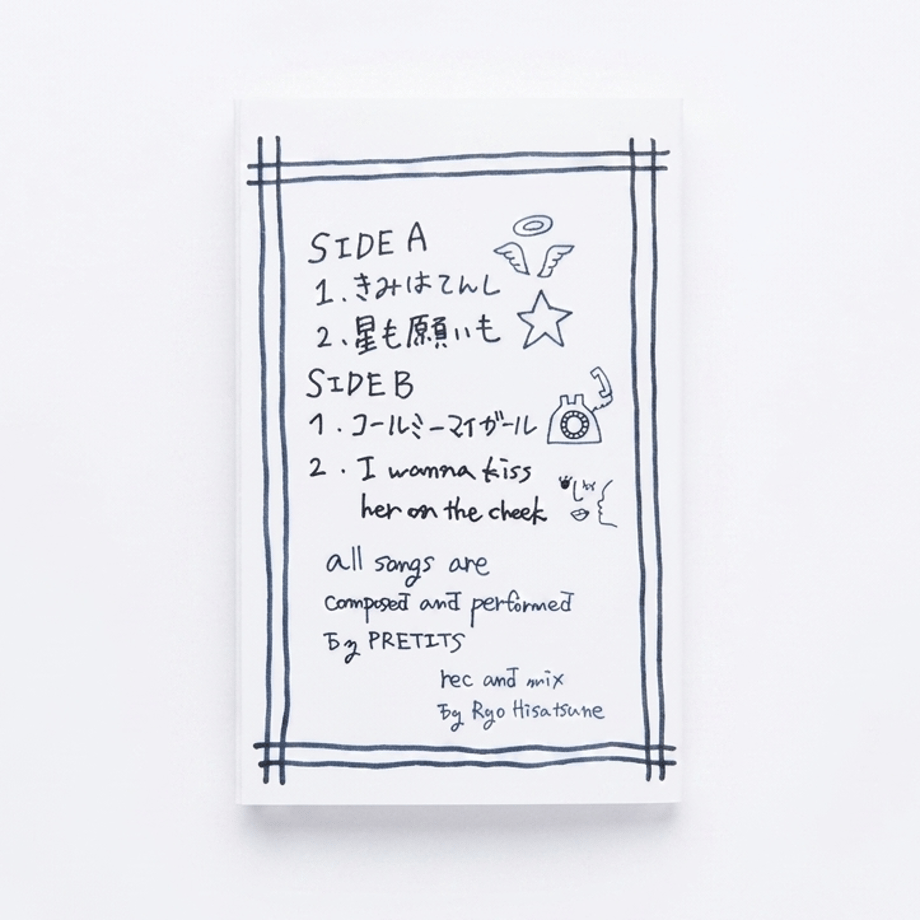 SIDE A
1.きみはてんし
2.星も願いも
SIDE B
1.コールミーマイガール
2.I wanna kiss
her on the cheek
all songs are
composed and performed
by PRETITS
rec and mix
by Ryo Hisatsune